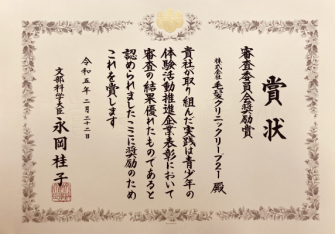 賞状
審査委員会奨励賞
株式会社 毛髪クリニックリーブ21 殿
貴社が取り組んだ実践は青少年の
体験活動推進企業表彰において
審査の結果優れたものであると
認められましたここに奨励のため
これを賞します
令和五年二月二十二日
文部科学大臣 永岡桂子